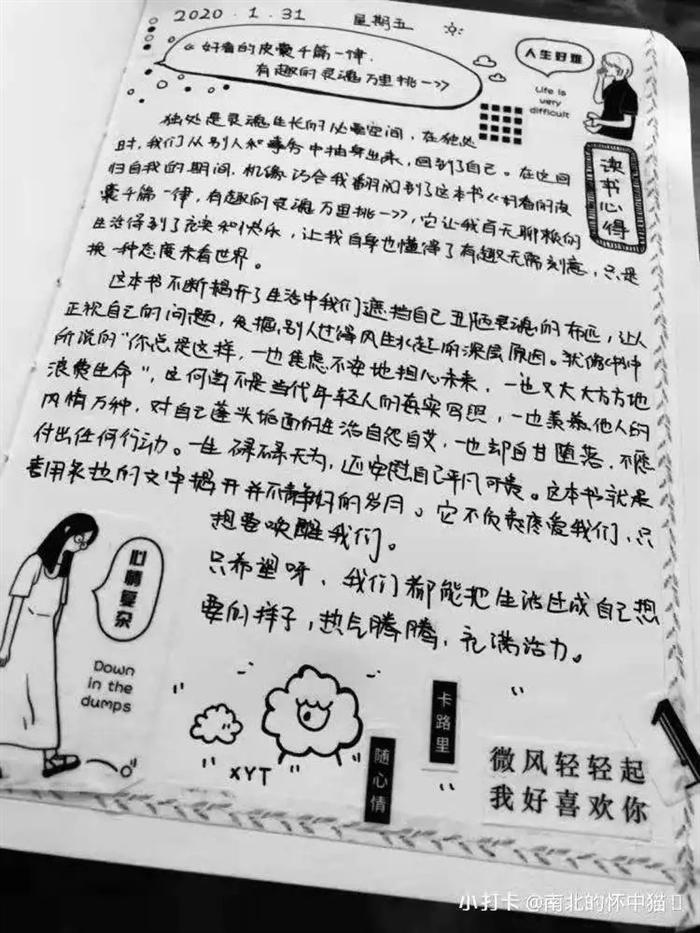 2020.1.31 星期五
《好看的皮囊千篇一律,
有趣的灵魂万里挑一》
人生好难
Life is
very
difficult
读书心得
独处是灵魂生长的必要空间,在独处
时,我们从别人和事务中抽身出来,回到了自己。在这回
归自我的期间,机缘巧合我翻阅到了这本书《好看的皮
囊千篇一律,有趣的灵魂万里挑一》,它让我百无聊赖的
生活得到了充实和快乐,让我自身也懂得了有趣无需刻意,只是
换一种态度来看世界。
这本书不断揭开了生活中我们遮挡自己丑陋灵魂的布匹,让人
正视自己的问题,发掘别人过得风生水起的深层原因。就像书中
所说的“你总是这样,一边焦虑不安地担心未来,一边又大大方方地
浪费生命”,这何尝不是当代年轻人的真实写照,一边羡慕他人的
风情万种,对自己蓬头垢面的生活自怨自艾,一边却自甘堕落,不愿
付出任何行动。一生碌碌无为,还安慰自己平凡可贵。这本书就是
善用的文字揭开并不静好的岁月。它不负责疼爱我们,只
想要唤醒我们。
只希望呀,我们都能把生活过成自己想
要的样子,热气腾腾,充满活力。
心情复杂
Down
in the
dumps
XYT
随心情
卡路里
1
微风轻轻起
我好喜欢你
小打卡 @南北的怀中猫